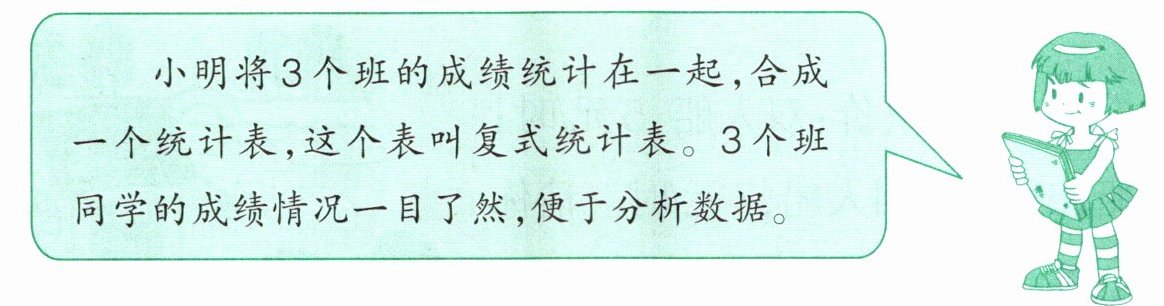 小明将3个班的成绩统计在一起,合成
一个统计表,这个表叫复式统计表。3个班
同学的成绩情况一目了然,便于分析数据。